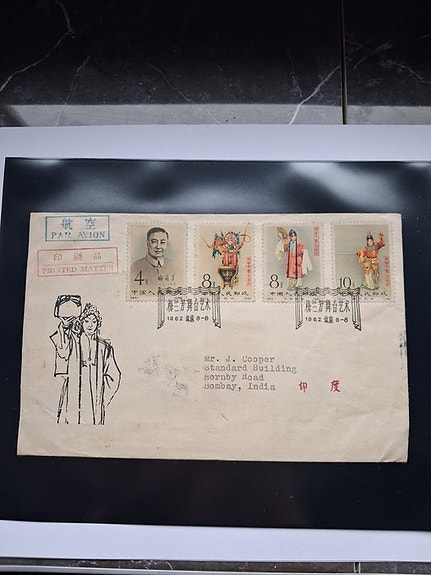 航空
PAR AVION
印刷品
PRINTED MATTER
4分
8分
8分
10分
中国人民邮政
梅兰芳舞台艺术
1962 北京 8-8
梅兰芳舞台艺术
1962 北京 8-8
Mr. J. Cooper
Standard Building
Hornby Road
Bombay, India
印度